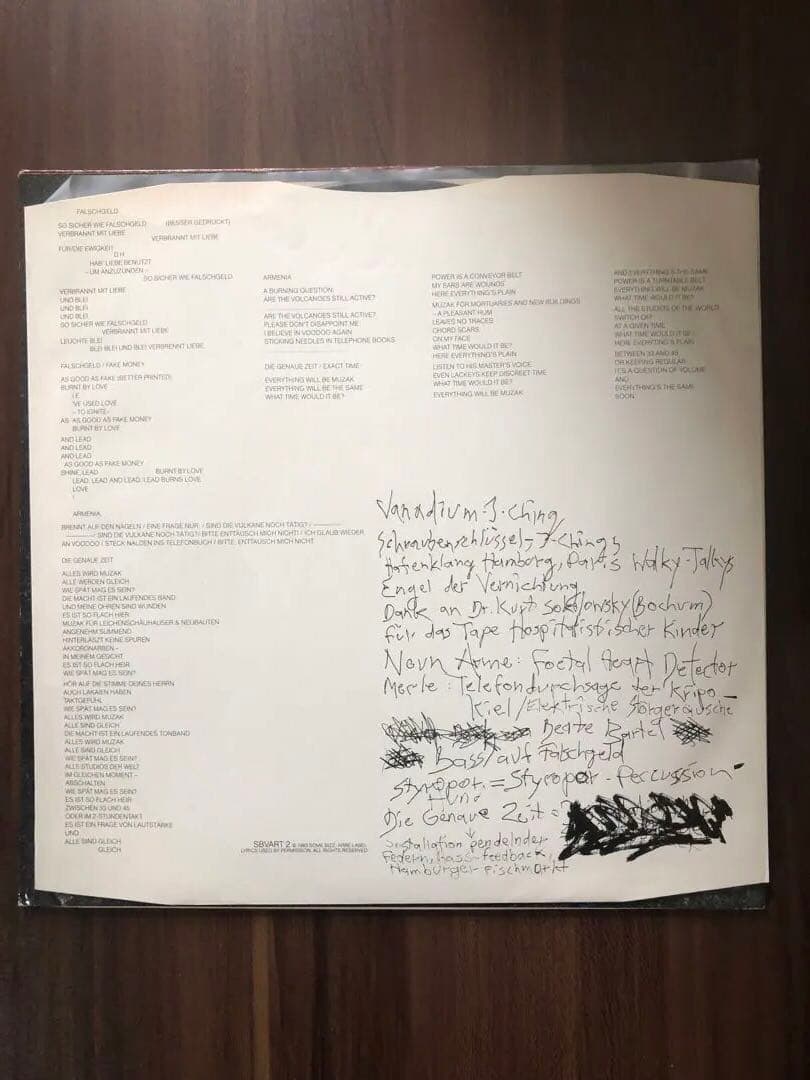 FALSCHGELD
SO SICHER WIE FALSCHGELD (BESSER GEDRUCKT)
VERBRANNT MIT LIEBE VERBRANNT MIT LIEBE
FÜR DIE EWIGKEIT
D.H.
HAB' LIEBE BENUTZT
– UM ANZUZÜNDEN –
SO SICHER WIE FALSCHGELD
VERBRANNT MIT LIEBE
UND BLEI
UND BLEI
UND BLEI
SO SICHER WIE FALSCHGELD
VERBRANNT MIT LIEBE
LEUCHTE BLEI
BLEI BLEI UND BLEI VERBRENNT LIEBE
FALSCHGELD / FAKE MONEY
AS GOOD AS FAKE (BETTER PRINTED)
BURNT BY LOVE
I.E.
'VE USED LOVE
– TO IGNITE –
AS AS GOOD AS FAKE MONEY
BURNT BY LOVE
AND LEAD
AND LEAD
AND LEAD
AS GOOD AS FAKE MONEY
SHINE, LEAD BURNT BY LOVE
LEAD, LEAD AND LEAD, LEAD BURNS LOVE
LOVE
!
ARMENIA
BRENNT AUF DEN NÄGELN / EINE FRAGE NUR: / SIND DIE VULKANE NOCH TÄTIG? /
/ SIND DIE VULKANE NOCH TÄTIG? / BITTE ENTTÄUSCH MICH NICHT! / ICH GLAUB WIEDER
AN VOODOO / STECK NALDEN INS TELEFONBUCH / BITTE, ENTTÄUSCH MICH NICHT
DIE GENAUE ZEIT
ALLES WIRD MUZAK
ALLE WERDEN GLEICH
WIE SPÄT MAG ES SEIN?
DIE MACHT IST EIN LAUFENDES BAND
UND MEINE OHREN SIND WUNDEN
ES IST SO FLACH HIER
MUZAK FÜR LEICHENSCHAUHÄUSER & NEUBAUTEN
ANGENEHM SUMMEND
HINTERLÄSST KEINE SPUREN
AKKORDNARBEN –
IN MEINEM GESICHT
ES IST SO FLACH HEIR
WIE SPÄT MAG ES SEIN?
HÖR AUF DIE STIMME DEINES HERRN
AUCH LAKAIEN HABEN
TAKTGEFÜHL
WIE SPÄT MAG ES SEIN?
ALLES WIRD MUZAK
ALLE SIND GLEICH
DIE MACHT IST EIN LAUFENDES TONBAND
ALLES WIRD MUZAK
ALLE SIND GLEICH
WIE SPÄT MAG ES SEIN?
ALLE STUDIOS DER WELT
IM GLEICHEN MOMENT –
ABSCHALTEN
WIE SPÄT MAG ES SEIN?
ES IST SO FLACH HEIR
ZWISCHEN 33 UND 45
ODER IM 2-STUNDENTAKT
ES IST EIN FRAGE VON LAUTSTÄRKE
UND
ALLE SIND GLEICH
GLEICH
ARMENIA
A BURNING QUESTION:
ARE THE VOLCANOES STILL ACTIVE?
ARE THE VOLCANOES STILL ACTIVE?
PLEASE DON'T DISAPPOINT ME
I BELIEVE IN VOODOO AGAIN
STICKING NEEDLES IN TELEPHONE BOOKS
DIE GENAUE ZEIT / EXACT TIME
EVERYTHING WILL BE MUZAK
EVERYTHING WILL BE THE SAME
WHAT TIME WOULD IT BE?
POWER IS A CONVEYOR BELT
MY EARS ARE WOUNDS
HERE EVERYTHING'S PLAIN
MUZAK FOR MORTUARIES AND NEW BUILDINGS
– A PLEASANT HUM
LEAVES NO TRACES
CHORD SCARS
ON MY FACE
WHAT TIME WOULD IT BE?
HERE EVERYTHING'S PLAIN
LISTEN TO HIS MASTER'S VOICE
EVEN LACKEYS KEEP DISCREET TIME
WHAT TIME WOULD IT BE?
EVERYTHING WILL BE MUZAK
AND EVERYTHING IS THE SAME
POWER IS A TURNTABLE BELT
EVERYTHING WILL BE MUZAK
WHAT TIME WOULD IT BE?
ALL THE STUDIOS OF THE WORLD
SWITCH OFF
AT A GIVEN TIME
WHAT TIME WOULD IT BE
HERE EVERYTING'S PLAIN
BETWEEN 33 AND 45
OR KEEPING REGULAR
IT'S A QUESTION OF VOLUME
AND
EVERYTHING'S THE SAME
SOON
Vanadium-I-Ching
Schraubenschlüssel-I-Ching
Hafenklang Hamburg, Walky-Talkys
Engel der Vernichtung
Dank an Dr. Kurt Sokolowsky (Bochum)
für das Tape Hospitalistischer Kinder
Neun Arme: Foetal Heart Detector
Merle: Telefondurchsage der Kripo
Kiel / Elektrische Störgeräusche
Beate Bartel
bass / auf Falschgeld
Styropor = Styropor-Percussion
Die Genaue Zeit
Installation pendelnder
Federn, bass-feedback,
Hamburger Fischmarkt
SBVART 2 © 1983 SOME BIZZARE LABEL
LYRICS USED BY PERMISSION. ALL RIGHTS RESERVED.